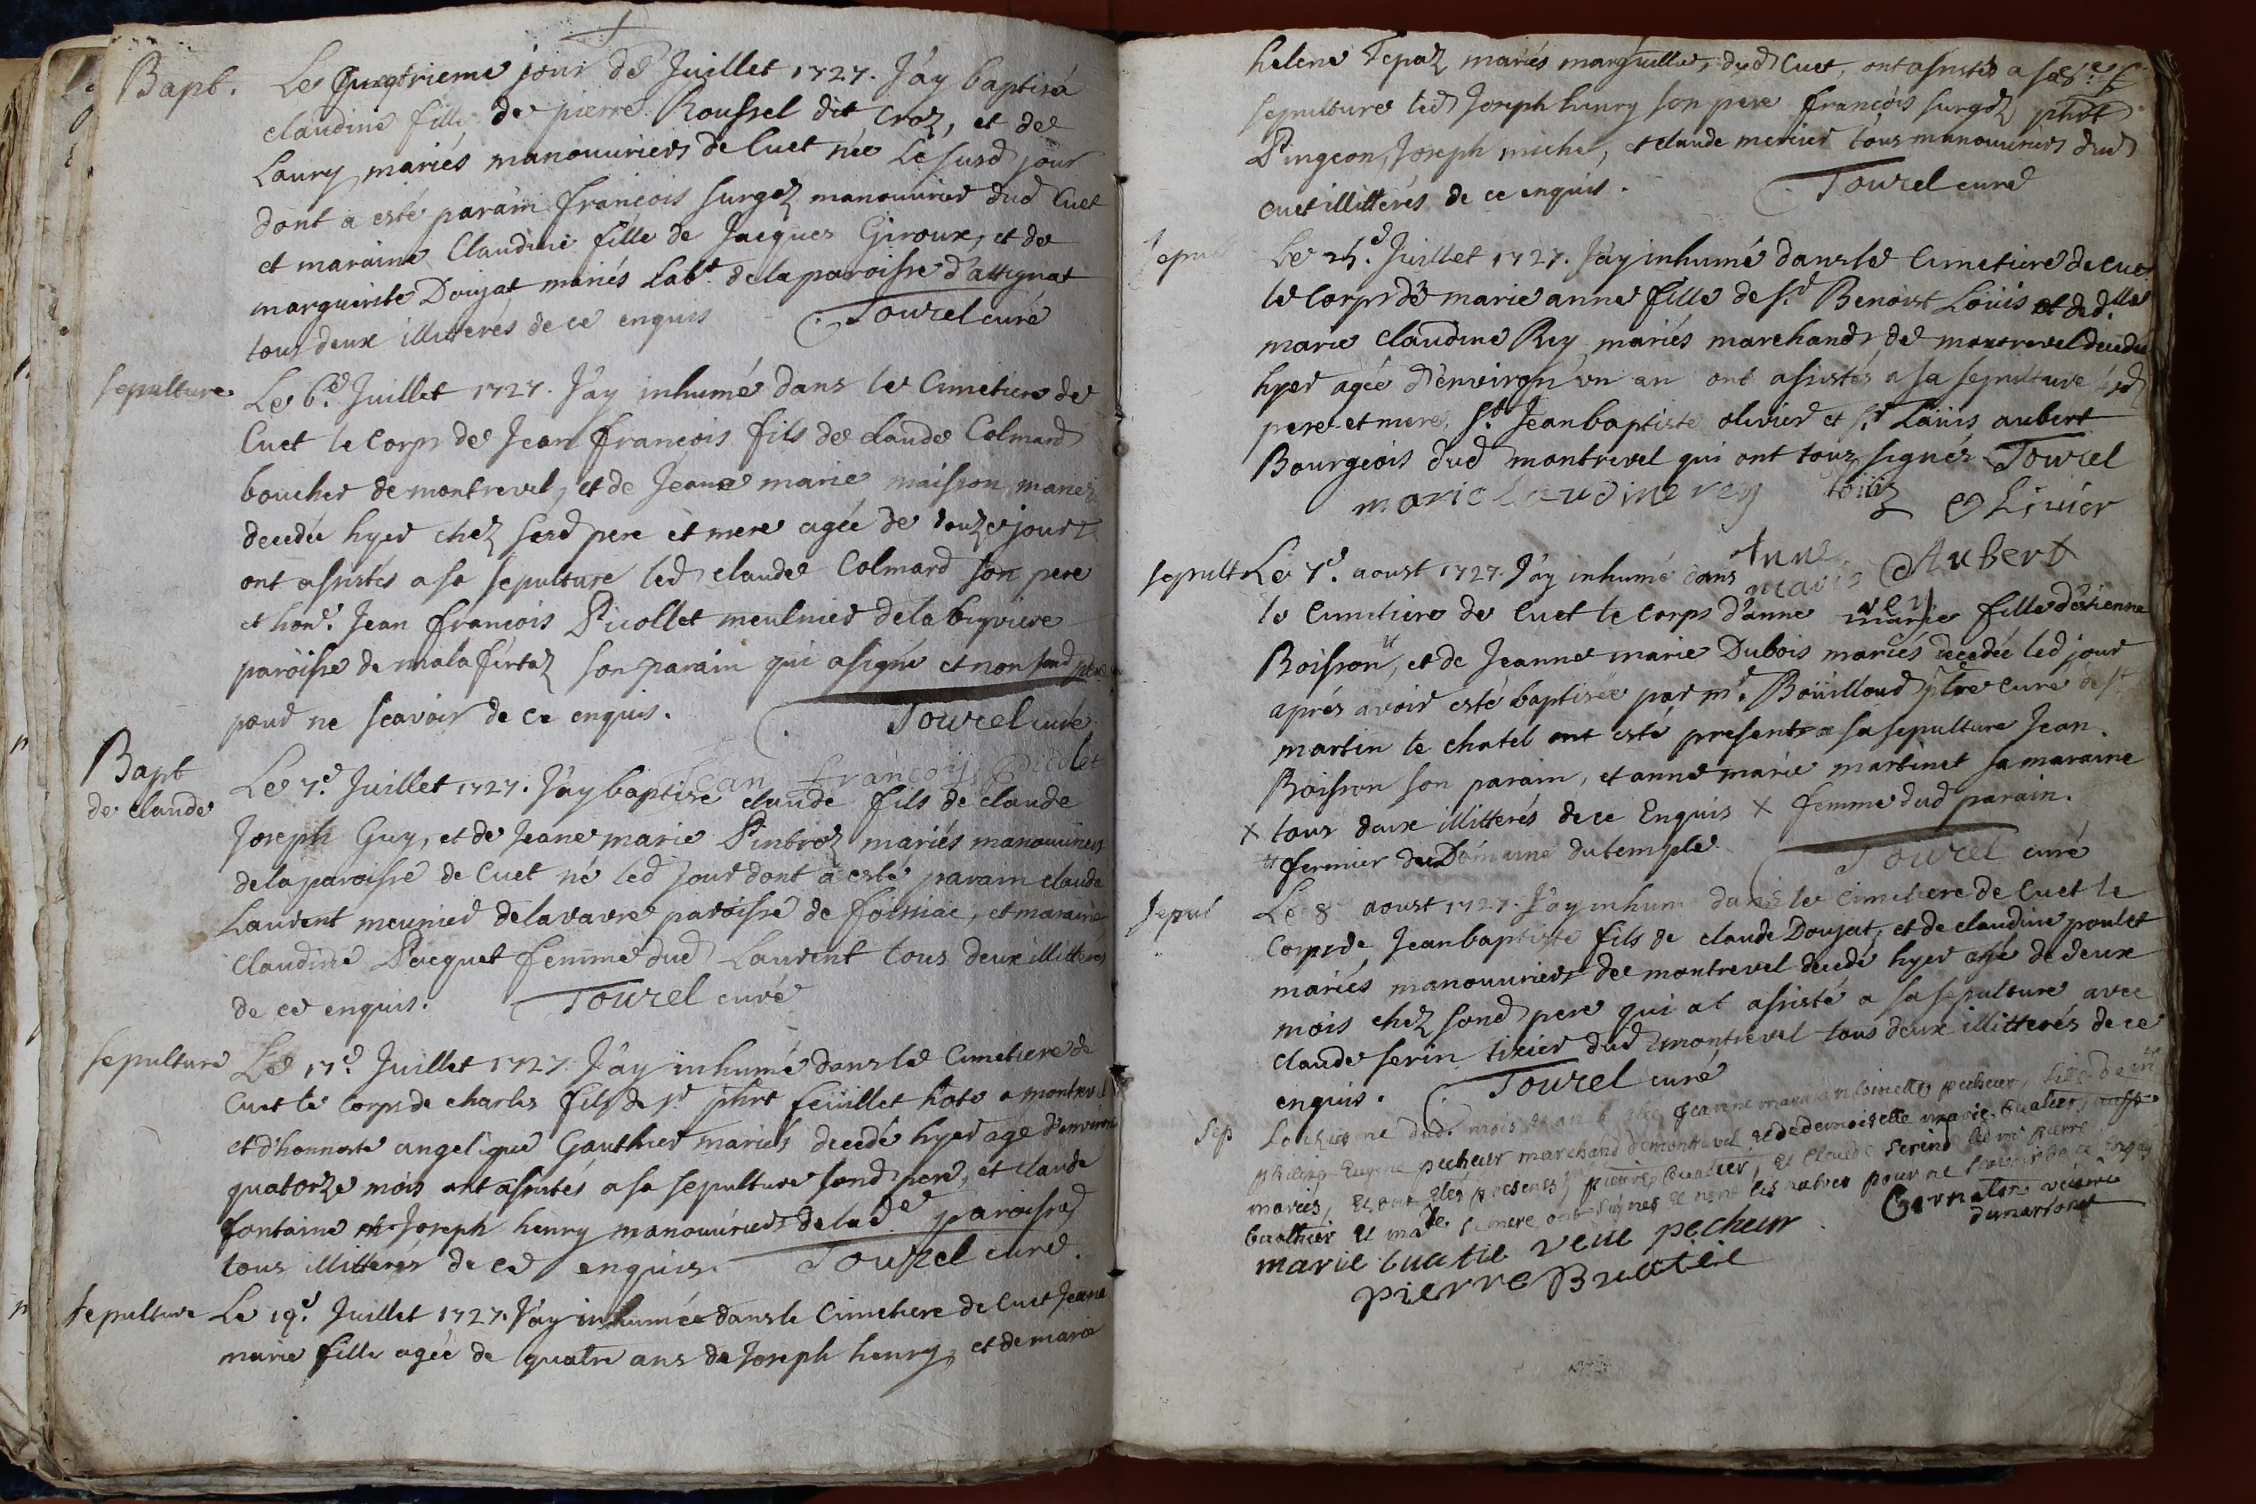 Bapt. Le Quatrieme jour de Juillet 1727. J'ay baptisé
claudine fille de pierre Roussel dit Croz, et de
Laury mariés manouuriers de Cuet née Le susd jour
dont a esté parain francois surgez manouurier dud Cuet
et maraine Claudine fille de Jacques Giroux, et de
marguerite Doujat mariés Labr. de la paroisse d'attignat
tous deux illiterés de ce enquis Tourel curé
sepulture Le 6e. Juillet 1727. J'ay inhumé dans le Cimetiere de
Cuet le Corps de Jean francois fils de claude Colmard
boucher de montrevel, et de Jeane marie maisson mariez
decedée hyer chez sesd pere et mere agée de douze jours
ont assistés a sa sepulture led claude Colmard son pere
et hone. Jean francois Picollet meulnier de la
paroisse de malafertaz son parain qui a signé et non sond pere
pour ne scavoir de ce enquis. Tourel curé
Jean francois Picolet
Bapt
de claude
Le 7e. Juillet 1727. J'ay baptisé claude fils de claude
Joseph Guy, et de Jeane marie Pinbroz mariés manouuriers
de la paroisse de Cuet né led jour dont a esté parain claude
Laurent meunier de la vavre paroisse de foissiac, et maraine
claudine Pacquet femme dud Laurent tous deux illitterés
de ce enquis. Tourel curé
sepulture Le 17e. Juillet 1727. J'ay inhumé dans le Cimetiere de
Cuet le Corps de charles fils de sr phrt feüillet hote a montrevel
et d'honneste angelique Gauthier mariés decedé hyer agé d'environ
quatorze mois ont assistés a sa sepulture sond pere, et claude
fontaine et Joseph henry manouuriers de lad.e paroisse
tous illitterés de ce enquis. Tourel curé.
sepulture Le 19e. Juillet 1727. J'ay inhumée dans le Cimetiere de Cuet Jeane
marie fille agée de quatre ans de Joseph henry, et de marie
helene Tepaz mariés marguillier, dud Cuet, ont assistés a sad.e
sepulture led Joseph henry son pere françois surgez phrt
Pingeon, Joseph michel, et claude mercier tous manouuriers dud
Cuet illitterés de ce enquis. Tourel curé
sepul Le 25e. Juillet 1727. J'ay inhumé dans le Cimetiere de Cuet
le Corps de marie anne fille de sr. Benoist Loüis et de dlle
marie claudine Rey mariés marchands de montrevel decedée
hyer agée d'environ un an ont assistés a sa sepulture sesd
pere et mere, sr. Jean baptiste olivier et sr. Loüis aubert
Bourgeois dud montrevel qui ont tous signés. Tourel
marie claudine rey Loüis Olivier
Aubert
sepult Le 7e. aoust 1727. J'ay inhumé dans
Anne marie
le Cimetiere de Cuet le Corps d'anne marie fille d'etienne
Boisson #, et de Jeanne marie Dubois mariés decedée led jour
aprés avoir esté baptisée par mr. Boüilloud ptre curé de st
martin le chatel ont esté presents a sa sepulture Jean
Boisson son parain, et anne marie martinet sa maraine
x tous deux illitterés de ce Enquis x femme dud parain.
# fermier du Domaine du temple Tourel curé
sepul Le 8e aoust 1727. J'ay inhumé dans le Cimetiere de Cuet le
Corps de Jean baptiste fils de claude Doujat, et de claudine poulet
mariés manouuriers de montrevel decedé hyer agé de deux
mois chez sond pere qui at assisté a sa sepulture avec
claude serin tixier dud montrevel tous deux illitterés de ce
enquis. Tourel curé
Sep Jeanne marie antoinette pecheur, fille de
philippe Eugene pecheur marchand demontrevel et dedemoiselle marie
mariés, et ont etés presents pierre et Claude Serind
et non les autres pour ne
marie veue pecheur
pierre Buatié